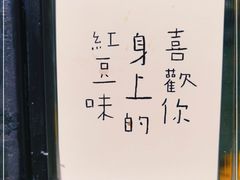 喜歡你
身上的
紅豆味